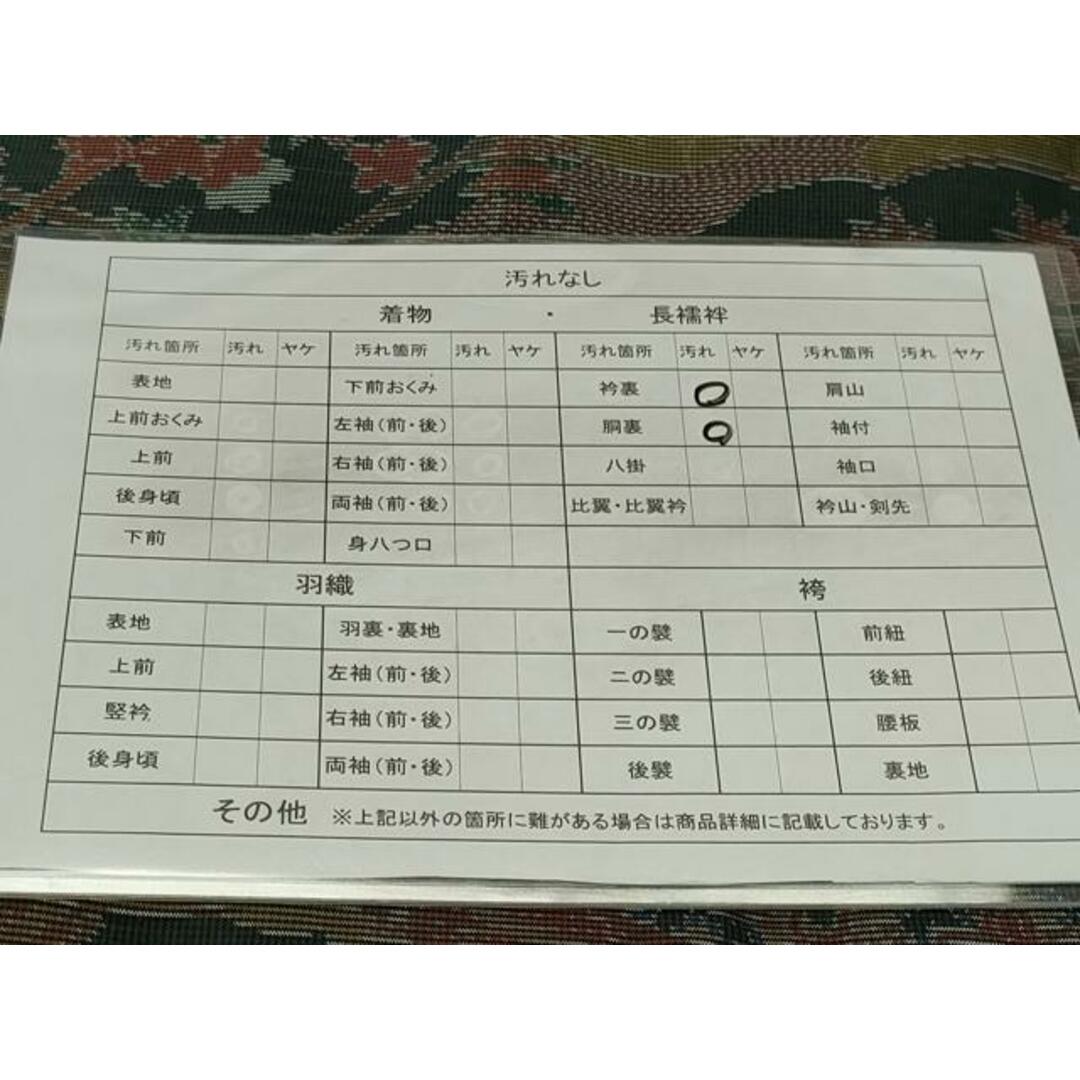 汚れなし
着物 ・ 長襦袢
汚れ箇所 汚れ ヤケ 汚れ箇所 汚れ ヤケ 汚れ箇所 汚れ ヤケ 汚れ箇所 汚れ ヤケ
表地 下前おくみ 衿裏 〇 肩山
上前おくみ 左袖(前・後) 胴裏 〇 袖付
上前 右袖(前・後) 八掛 袖口
後身頃 両袖(前・後) 比翼・比翼衿 衿山・剣先
下前 身八つ口
羽織 袴
表地 羽裏・裏地 一の襞 前紐
上前 左袖(前・後) 二の襞 後紐
竪衿 右袖(前・後) 三の襞 腰板
後身頃 両袖(前・後) 後襞 裏地
その他 ※上記以外の箇所に難がある場合は商品詳細に記載しております。